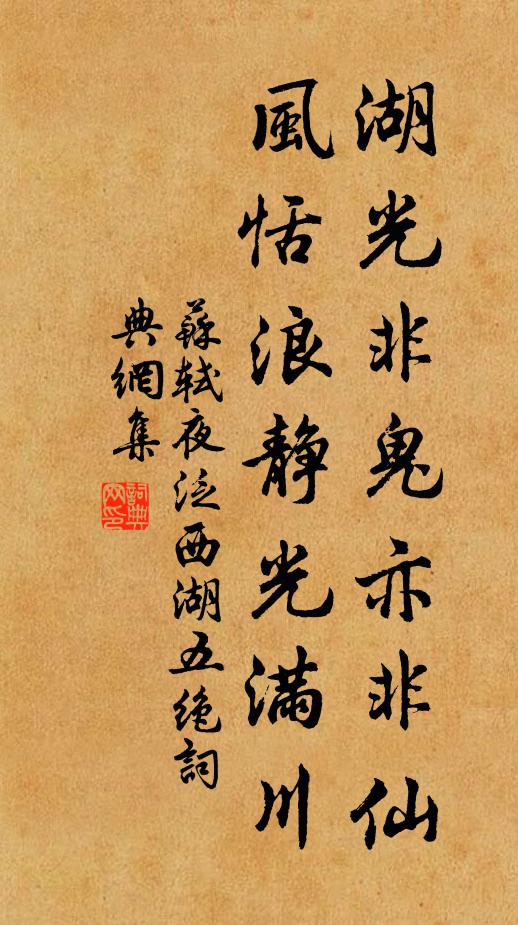 湖光非鬼亦非仙
風恬浪静光滿川
蘇軾夜泛西湖五绝詞
典網集
詞典